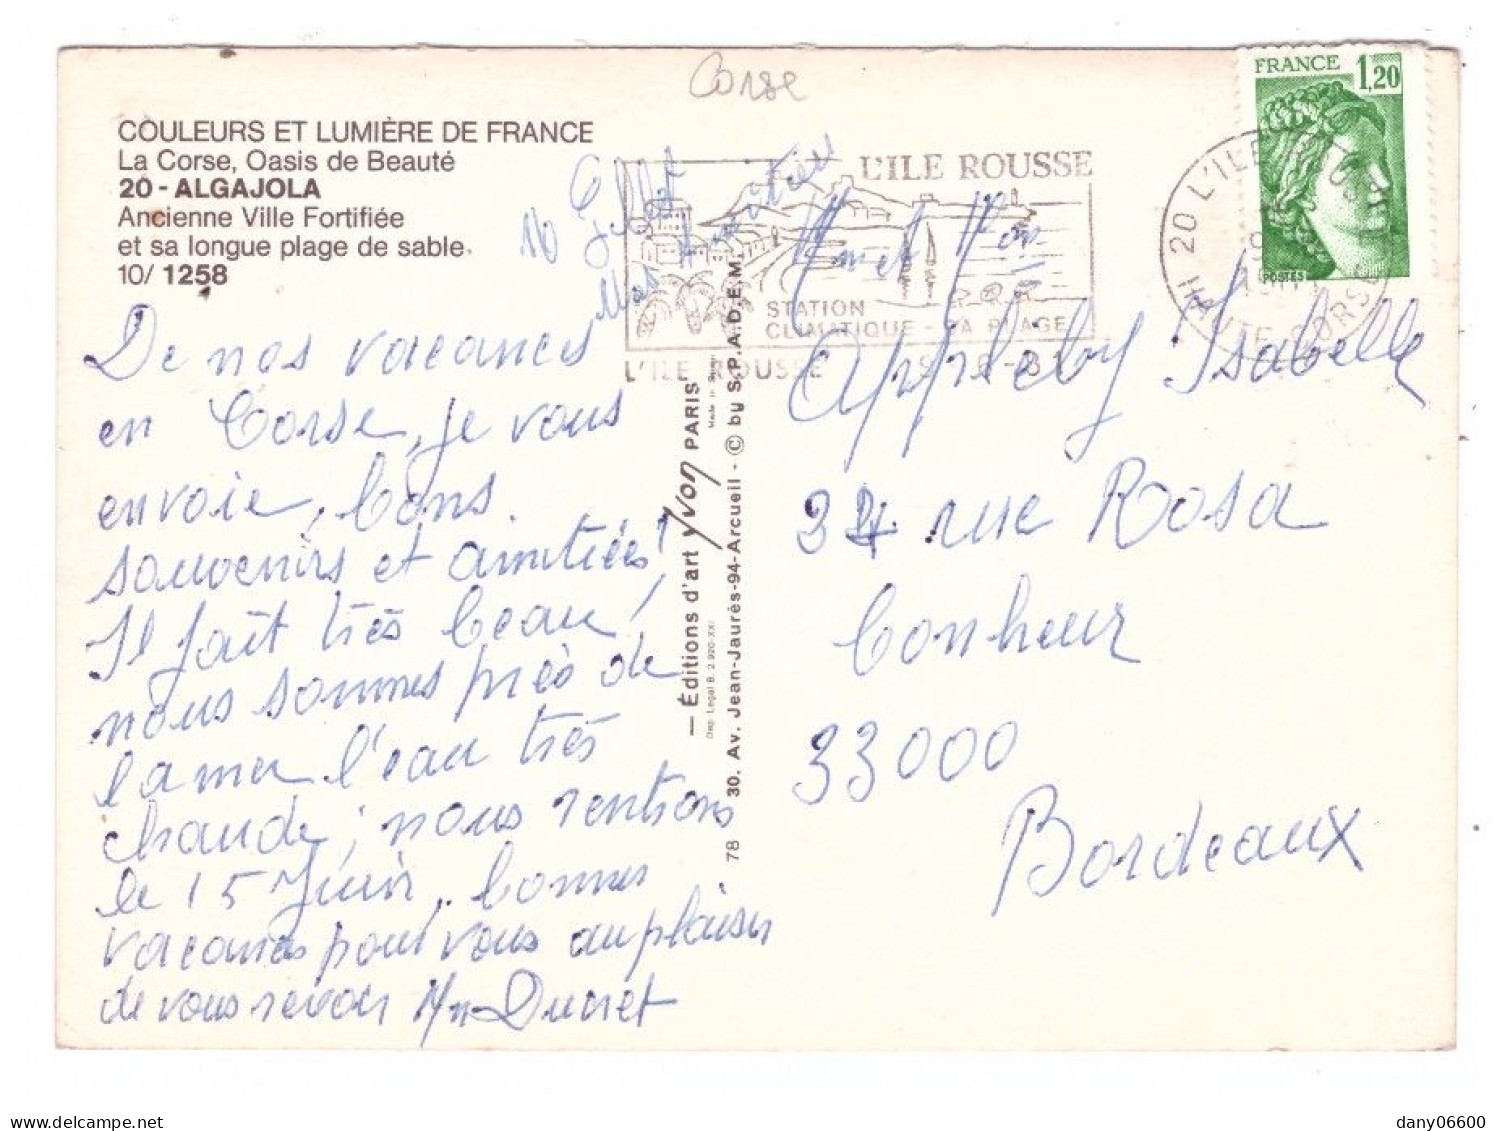 Corse
COULEURS ET LUMIÈRE DE FRANCE
La Corse, Oasis de Beauté
20 - ALGAJOLA
Ancienne Ville Fortifiée
et sa longue plage de sable
10/ 1258
De nos vacances
en Corse, je vous
envoie, bons
souvenirs et amitiés!
Il fait très beau!
nous sommes près de
la mer l'eau très
chaude; nous rentrons
le 15 Juin. bonnes
vacances pour vous au plaisir
de vous revoir Mr Ducret
— Éditions d'art Yvon PARIS
Made in
Dép. Légal B. 2.920-XXI
78 30. Av. Jean-Jaurès-94-Arcueil - © by S.P.A.D.E.M.
L'ILE ROUSSE
STATION
CLIMATIQUE - SA PLAGE
L'ILE ROUSSE
FRANCE 1,20
POSTES
20 L'ILE ROUSSE
HAUTE-CORSE
Appleby Isabelle
34 rue Rosa
bonheur
33000
Bordeaux
dany06600